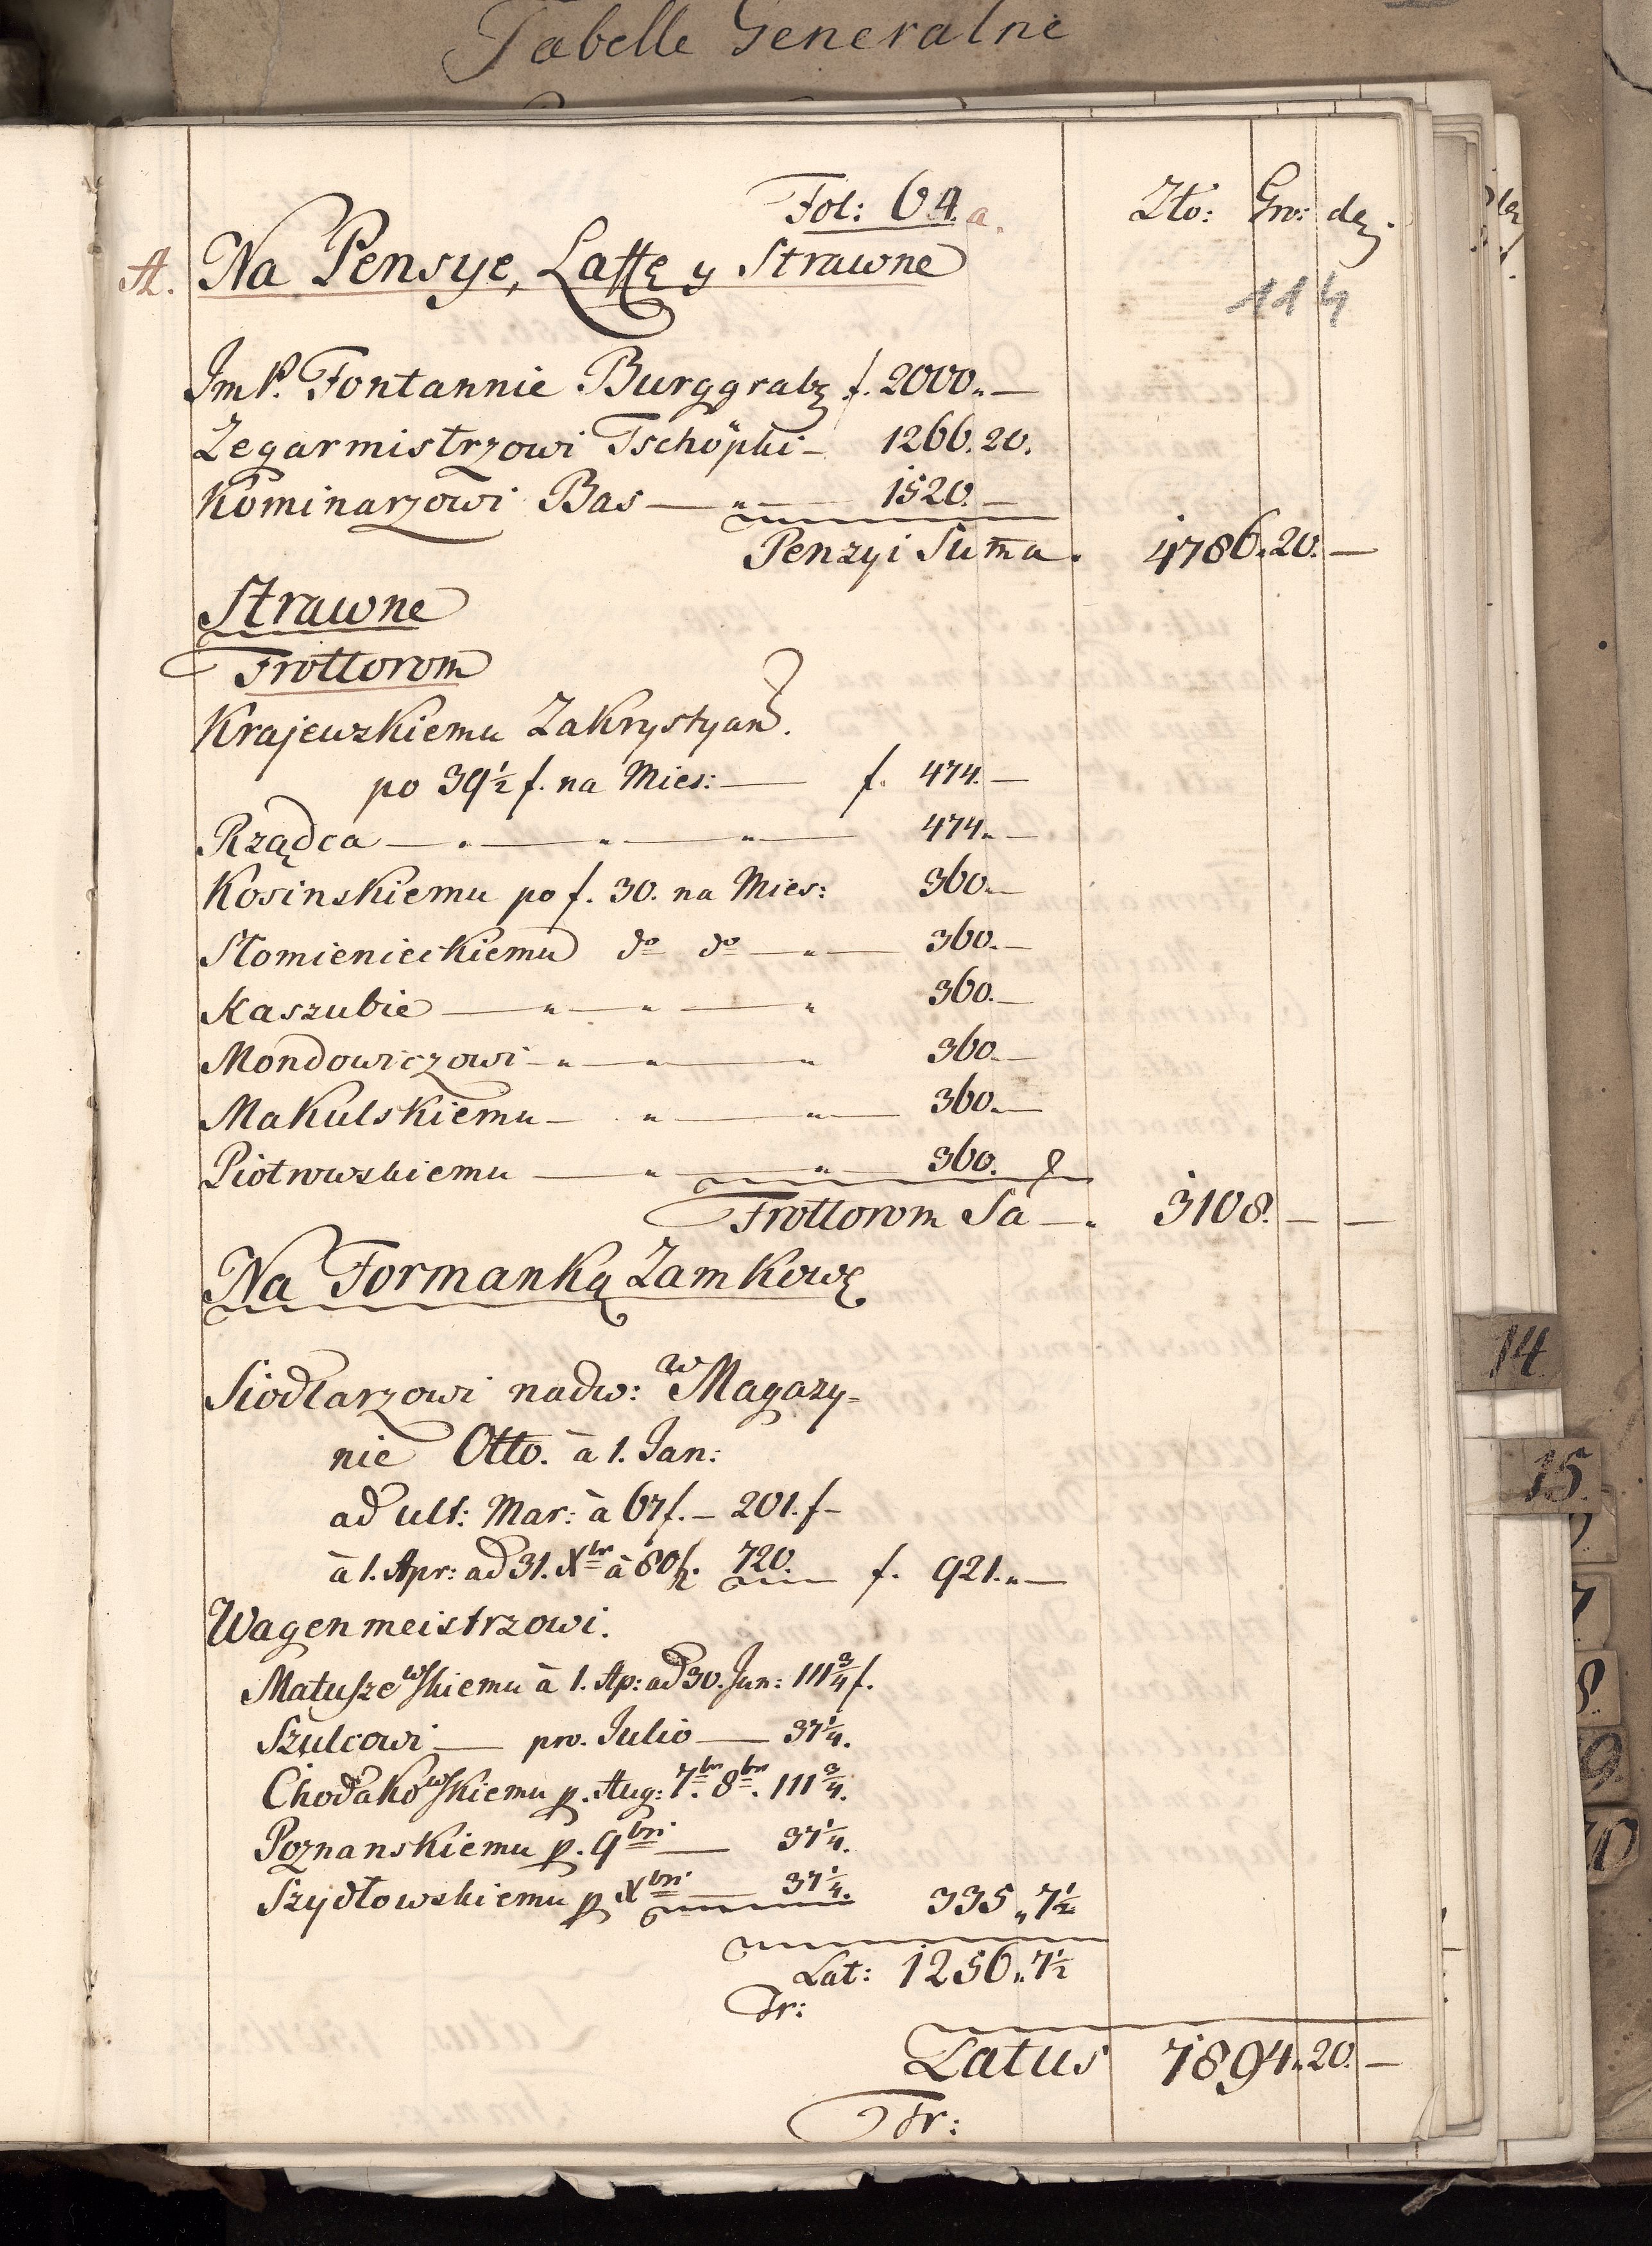 Tabelle Generalne
Fol: 64. a.
Zło: Gro: de
A. Na Pensye, Laffę y Strawne
114
JmP. Fontannie Burggrabz f. 2000.„—
Zegarmistrzowi Tschöpki — 1266. 20.
Kominarzowi Bas — „ — 1520. —
Penzyi Suma. 4786. 20. —
Strawne
Frottorom
Krajewzkiemu Zakrystyan.
po 39½ f. na Mies: — f. 474. —
Rządca — „ — „ — „ — 474.„ —
Kosinskiemu po f. 30. na Mies: 360. —
Słomienieckiemu do do — „ — 360. —
Kaszubie — „ — „ — „ 360. —
Mondowiczowi — „ — „ — „ 360. —
Makulskiemu — „ — „ — 360. —
Piotrowskiemu — „ — „ — 360.
Frottorom Sa — „ 3108. — —
Na Formanką Zamkowę
Siodlarzowi nadw: w Magazy-
nie Otto. à 1. Jan:
ad ult: Mar: à 67 f. — 201. f —
à 1. Apr: ad 31. Xbr à 80 f. 720. f. 921.„ —
Wagenmeistrzowi.
Matuszewskiemu à 1. Ap: ad 30. Jun: 111¾ f.
Szulcowi — pro. Julio — 37¼.
Chodakowskiemu p. Aug: 7br. 8br. 111¾.
Poznanskiemu p. 9bri — 37¼.
Szydłowskiemu p Xbri — 37¼. 335 „ 7½
Lat: 1256.„ 7½
Tr:
Latus 7894.„ 20. —
Tr:
14.
15.